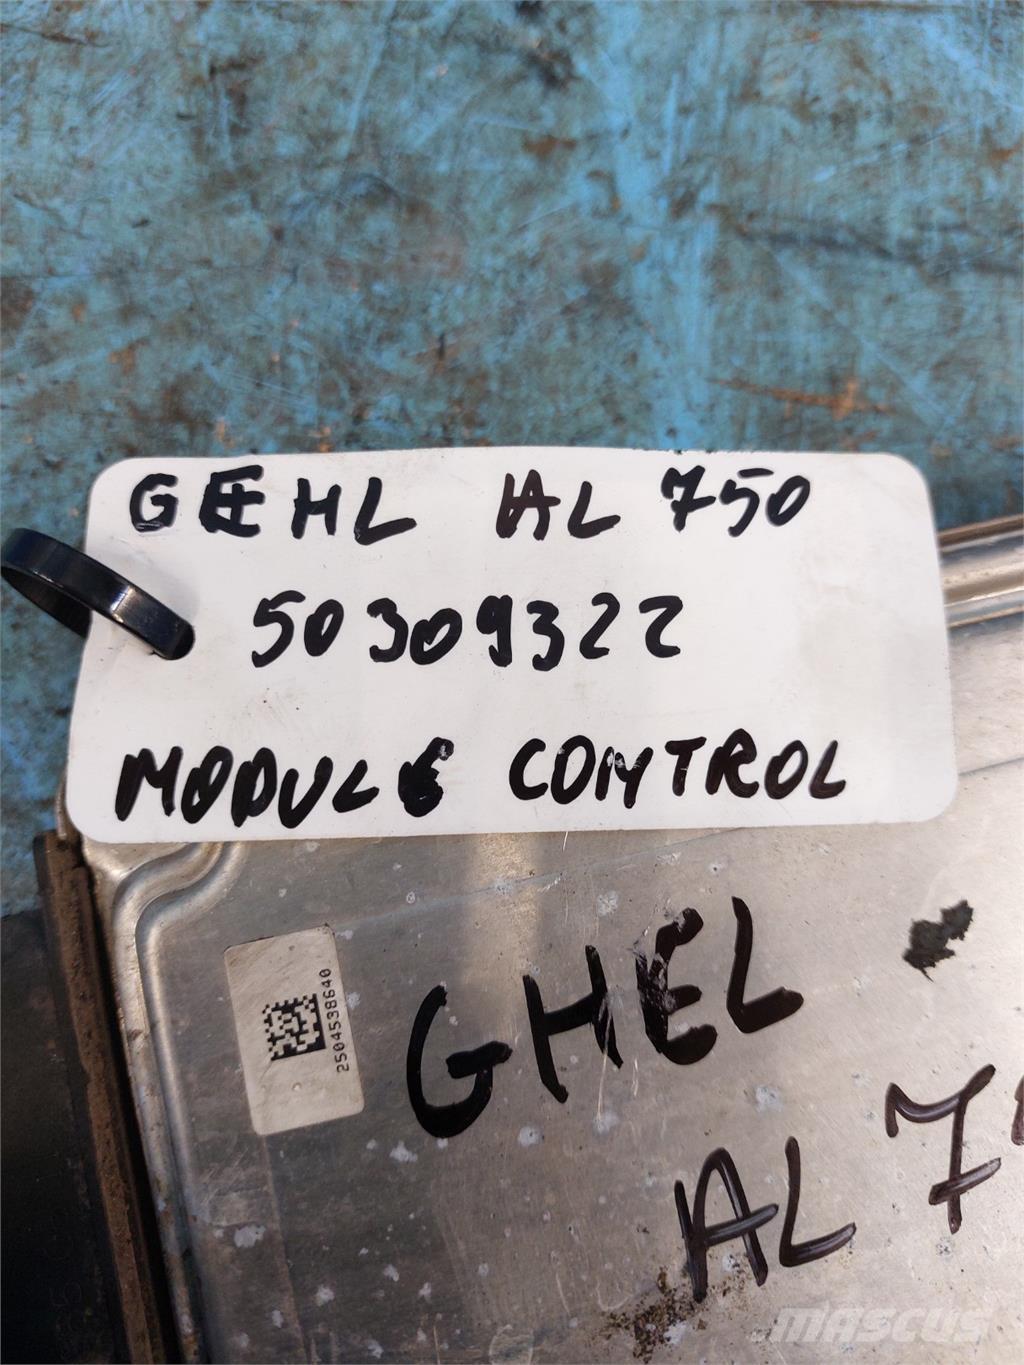 GEHL AL 750
50309322
MODULE CONTROL
2504538640
GHEL
AL 7
MASCUS